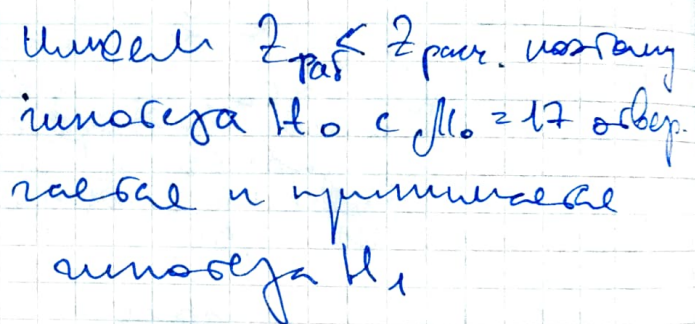 Имеем Z таб < Z расч. поэтому
гипотеза H₀ с M₀ = 17 отвер-
гается и принимается
гипотеза H₁